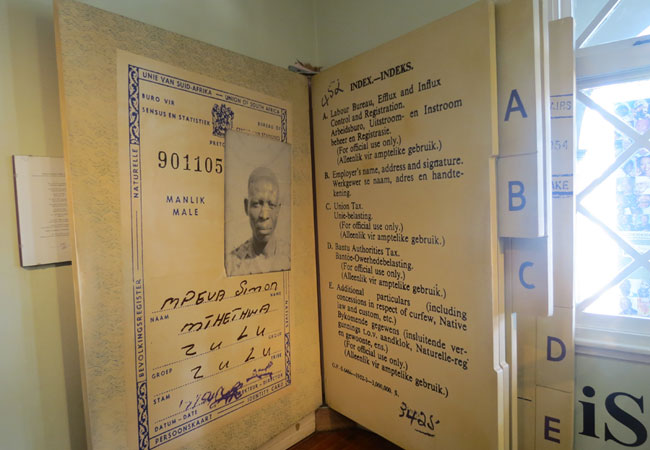 UNIE VAN SUID-AFRIKA - UNION OF SOUTH AFRICA
BURO VIR
SENSUS EN STATISTIEK
BUREAU OF
901105
MANLIK
MALE
NAAM
MPEVA Simon
NAME
MTHETHWA
ZULU
GROEP
ZULU
STAM
DATUM - DATE
PERSOONSKAART
IDENTITY CARD
BEVOLKINGSREGISTER
NATURELLE
INDEX.—INDEKS.
A. Labour Bureau, Efflux and Influx
Control and Registration.
Arbeidsburo, Uitstroom- en Instroom
beheer en Registrasie.
(For official use only.)
(Alleenlik vir amptelike gebruik.)
B. Employer's name, address and signature.
Werkgewer se naam, adres en handte-
kening.
C. Union Tax.
Unie-belasting.
(For official use only.)
(Alleenlik vir amptelike gebruik.)
D. Bantu Authorities Tax.
Bantoe-Owerhedebelasting.
(For official use only.)
(Alleenlik vir amptelike gebruik.)
E. Additional particulars (including
concessions in respect of curfew, Native
law and custom, etc.)
Bykomende gegewens (insluitende ver-
gunnings t.o.v. aandklok, Naturelle-reg
en gewoonte, ens.)
(For official use only.)
(Alleenlik vir amptelike gebruik.)
3425
A
B
C
D
E
iS